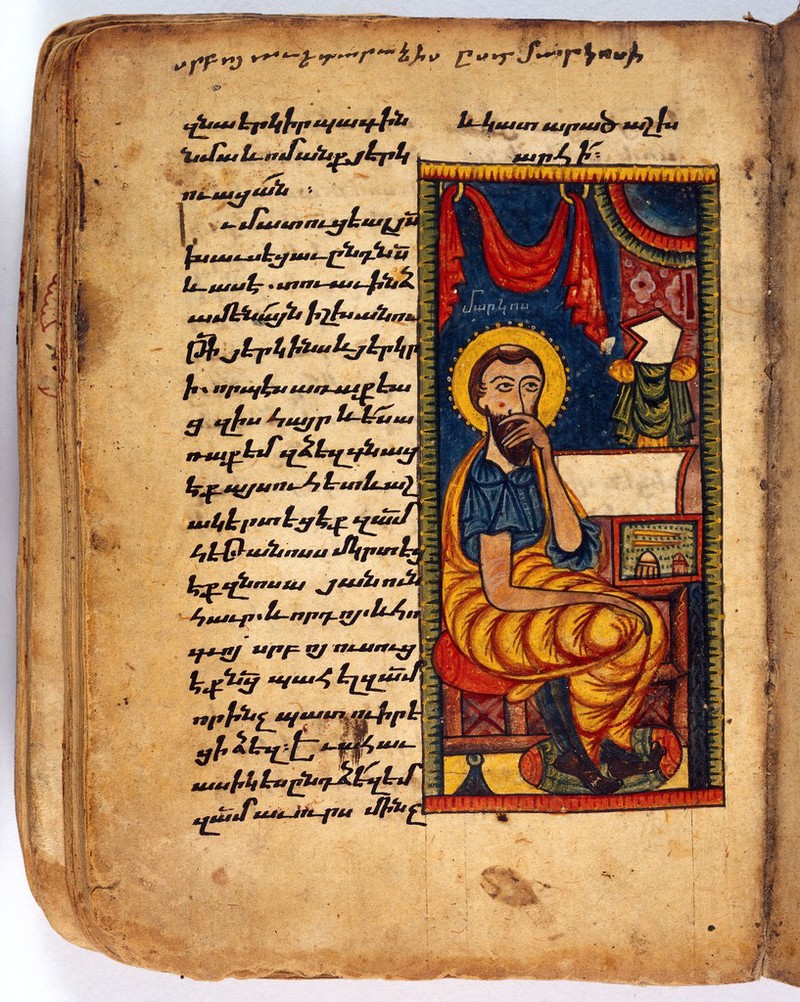 սրբոյ աւետարանիս ըստ մարկոսի
զնա երկիր պագին
նմա և ոմանք յերկ
ուացան ։
և մատուցեալ յս̅
խաւսեցաւ ընդ նս̅
և ասէ . տուաւ ինձ
ամենայն իշխանու
թի̅ յերկինս և յերկր
ի. որպես առաքեա
ց զիս հայր և ես ա
ռաքեմ զձեզ գնաց
եք այսուհետև աշ
ակերտեցեք զամ̅
հեթանոսս մկրտեց
եք զնոսա յանուն
հաւր. և որդոյ. և հո
գւոյ սրբոյ ուսուց
եք նց̅ պահել զամ̅
որինչ պատուիրե
ցի ձեզ։ և ահաւ
ասիկ ես ընդ ձեզ եմ
զամ̅ աւուրս մինչ
և կատարած աշխ
արհի։
մարկոս